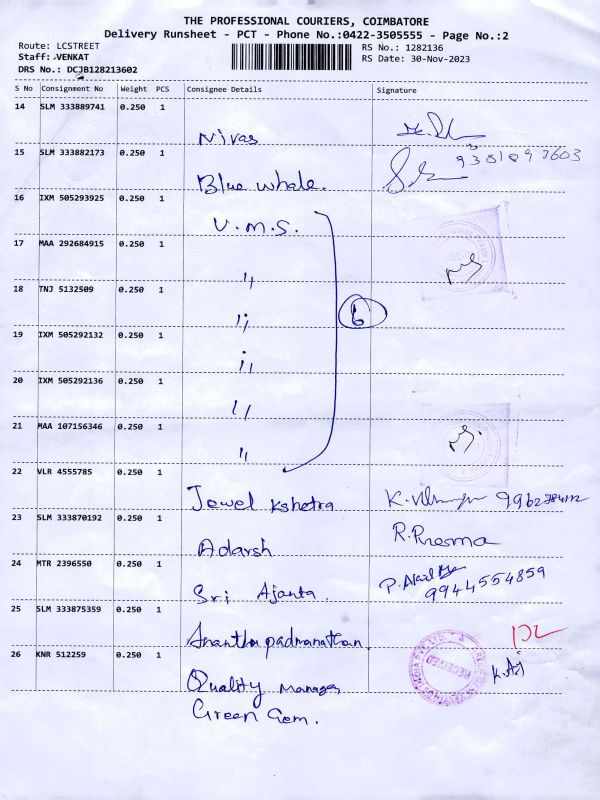 THE PROFESSIONAL COURIERS, COIMBATORE
Delivery Runsheet - PCT - Phone No.:0422-3505555 - Page No.:2
Route: LCSTREET
RS No.: 1282136
Staff: VENKAT
RS Date: 30-Nov-2023
DRS No.: DCJB128213602
S No Consignment No Weight PCS Consignee Details Signature
14 SLM 333889741 0.250 1
Nivas
15 SLM 333882173 0.250 1
Blue whale.
16 IXM 505293925 0.250 1
V.M.S.
17 MAA 292684915 0.250 1
"
18 TNJ 5132509 0.250 1
"
6
19 IXM 505292132 0.250 1
"
20 IXM 505292136 0.250 1
"
21 MAA 107156346 0.250 1
"
22 VLR 4555785 0.250 1
Jewel Kshetra
23 SLM 333870192 0.250 1
R.Prema
Adarsh
24 MTR 2396550 0.250 1
Sri Ajanta. 9944554859
25 SLM 333875359 0.250 1
Anantha padmanathan
26 KNR 512259 0.250 1
RECEIVED
Quality Manager
Green Gem.